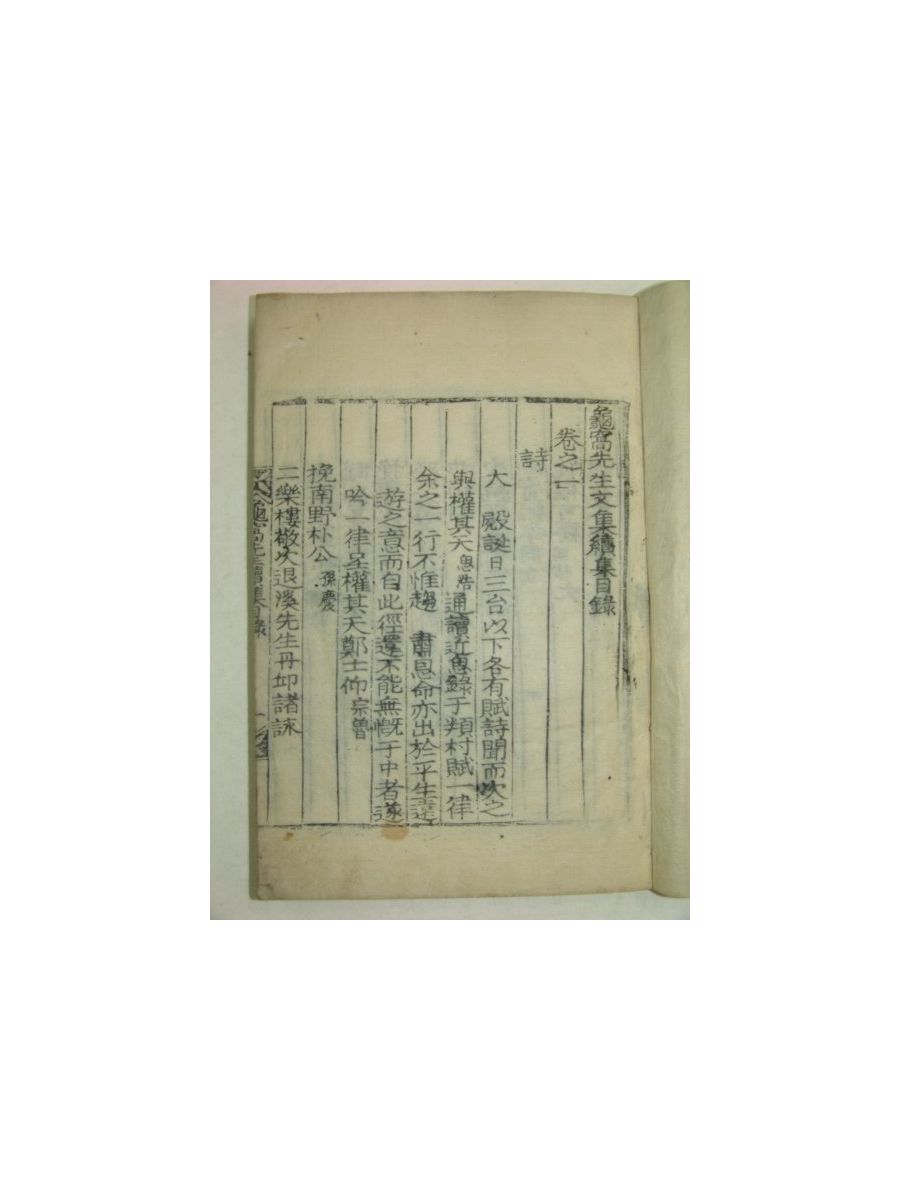 龜窩先生文集續集目錄
卷之一
詩
大 殿誕日三台以下各有賦詩聞而次之
與權其天思浩通讀近思錄于類村賦一律
余之一行不惟趨 肅恩命亦出於平生遠
遊之意而自此徑還不能無慨于中者遂
吟一律呈權其天鄭士仰宗魯
挽南野朴公孫慶
二樂樓敬次退溪先生丹邱諸詠
龜窩先生續集目錄 一